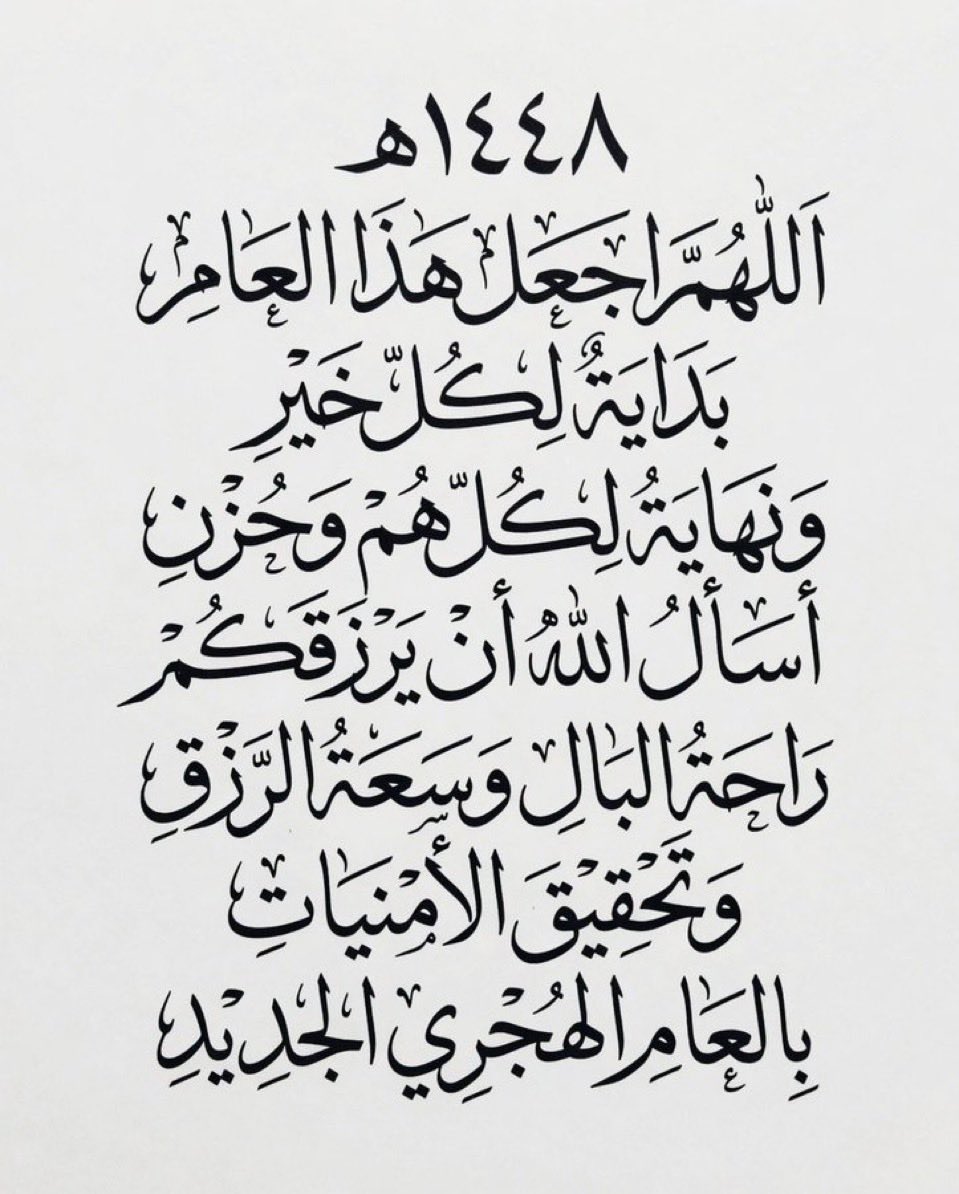 ١٤٤٨ه
اَللّٰهُمَّ اجْعَل هَذَا العَامِ
بَدَايَةٌ لِكُلّ خَيْرِ
وَنَهَايَةُ لِكُلّ هُمْ وَحُزْنِ
أسَألُ اللهُ أنْ يَرْزَقَكُمْ
رَاحَةُ البَالِ وَسِعَةُ الرَّزْقِ
وَتَحْقِيْقَ الأمْنيَاتِ
بِالعَامِ الهُجْرِي الجَدِيْدِ